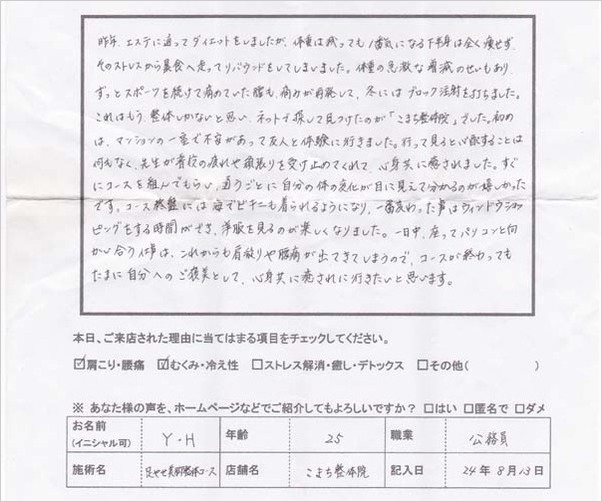 昨年、エステに通ってダイエットをしましたが、体重は減っても1番気になる下半身は全く痩せず、
そのストレスから暴食へ走ってリバウンドをしてしまいました。体重の急激な増減のせいもあり、
ずっとスポーツを続けて痛めていた腰も、痛みが再発して、冬にはブロック注射を打ちました。
これはもう、整体しかないと思い、ネットで探して見つけたのが「こまち整体院」でした。初め
は、マンションの一室で不安があって友人と体験に行きました。行って見ると心配することは
何もなく、先生が普段の疲れや頑張りを受け止めてくれて、心身共に癒されました。すぐ
にコースを組んでもらい、通うごとに自分の体の変化が目に見えて分かるのが嬉しかった
です。コース終盤には海でビキニも着られるようになり、一番変わった事はウィンドウショッ
ピングをする時間ができ、洋服を見るのが楽しくなりました。一日中、座ってパソコンと向
かい合う仕事は、これからも肩凝りや腰痛が出てきてしまうので、コースが終わっても
たまに自分へのご褒美として、心身共に癒されに行きたいと思います。
本日、ご来店された理由に当てはまる項目をチェックしてください。
☑肩こり・腰痛 ☑むくみ・冷え性 □ストレス解消・癒し・デトックス □その他( )
※ あなた様の声を、ホームページなどでご紹介してもよろしいですか? □はい □匿名で □ダメ
お名前(イニシャル可) Y・H 年齢 25 職業 公務員
施術名 足やせ美脚整体コース 店舗名 こまち整体院 記入日 24年8月13日